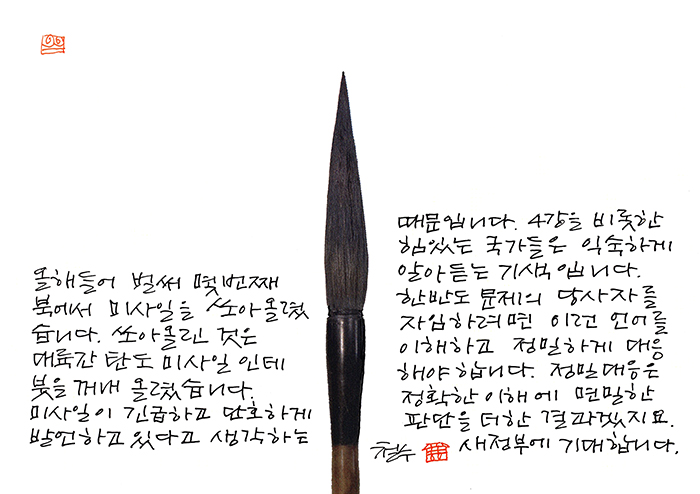 올해들어 벌써 몇번째
북에서 미사일을 쏘아올렸
습니다. 쏘아올린 것은
대륙간 탄도 미사일 인데
붓을 꺼내 올렸습니다.
미사일이 긴급하고 단호하게
발언하고 있다고 생각하는
때문입니다. 4강을 비롯한
힘있는 국가들은 익숙하게
알아듣는 기색입니다.
한반도 문제의 당사자를
자임하려면 이런 언어를
이해하고 정밀하게 대응
해야 합니다. 정밀대응은
정확한 이해에 면밀한
판단을 더한 결과겠지요.
새정부에 기대합니다.
철수